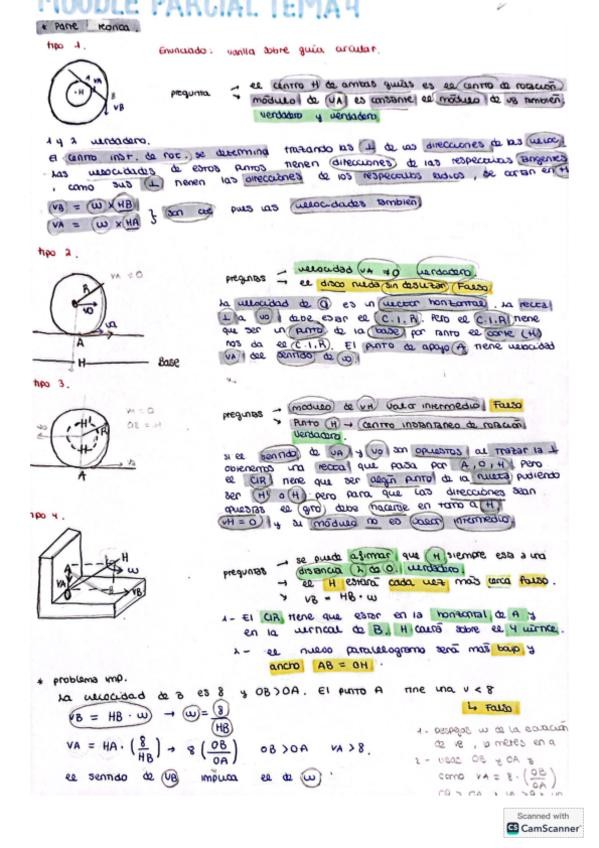 MOODLE PARCIAL TEMA 4
* Parte teorica.
tipo 1.
Enunciado: varilla sobre guía circular.
H
A
VA
B
VB
pregunta
→ el centro H de ambas guías es el centro de rotación
→ módulo de VA es constante el módulo de VB también
verdadero y verdadero
1 y 2 verdadero.
El centro inst. de rot. se determina trazando las ⊥ de las direcciones de las veloc.
Las velocidades de estos puntos tienen direcciones de las respectivas tangentes
, como sus ⊥ tienen las direcciones de los respectivos radios, se cortan en H
VB = W x HB
VA = W x HA
} son cte pues las velocidades también
tipo 2.
VA = 0
A
VO
A
H
Base
preguntas
→ velocidad VA ≠ 0 verdadero.
→ el disco rueda sin deslizar Falso
La velocidad de O es un vector horizontal. La recta
⊥ a VO debe estar el C.I.R. Pero el C.I.R tiene
que ser un punto de la base por tanto el corte (H)
nos da el C.I.R. El punto de apoyo A tiene velocidad
VA del sentido de VO
tipo 3.
H'
H
A
preguntas
→ modulo de VH valor intermedio Falso
→ Punto H → centro instantaneo de rotación
Verdadero.
si el sentido de VA y VO son opuestos al trazar la ⊥
obtenemos una recta que pasa por A, O, H. Pero
el CIR tiene que ser algún punto de la ruleta pudiendo
ser H' o H pero para que las direcciones sean
opuestas el giro debe hacerse en torno a H
VH = 0 y su módulo no es valor intermedio.
tipo 4.
A
H
W
VA
B
VB
preguntas
→ se puede afirmar que H siempre esta a una
distancia λ de O. verdadero.
→ el H estará cada vez mas cerca Falso.
→ VB = HB · W
1- El CIR tiene que estar en la horizontal de A y
en la vertical de B. H caerá sobre el 4 vértice.
2- el nuevo paralelogramo será mas bajo y
ancho AB = OH.
* problema imp.
La velocidad de B es 8 y OB > OA. El punto A tine una V < 8
↳ Falso
VB = HB · W → W = 8/HB
VA = HA · (8/HB) → 8 (OB/OA) OB > OA VA > 8.
el sentido de VB implica el de W.
1- Despejas W de la ecuación
de VB, lo metes en a
2- usas OB y OA a
como VA = 8 · (OB/OA)
Scanned with
CS CamScanner